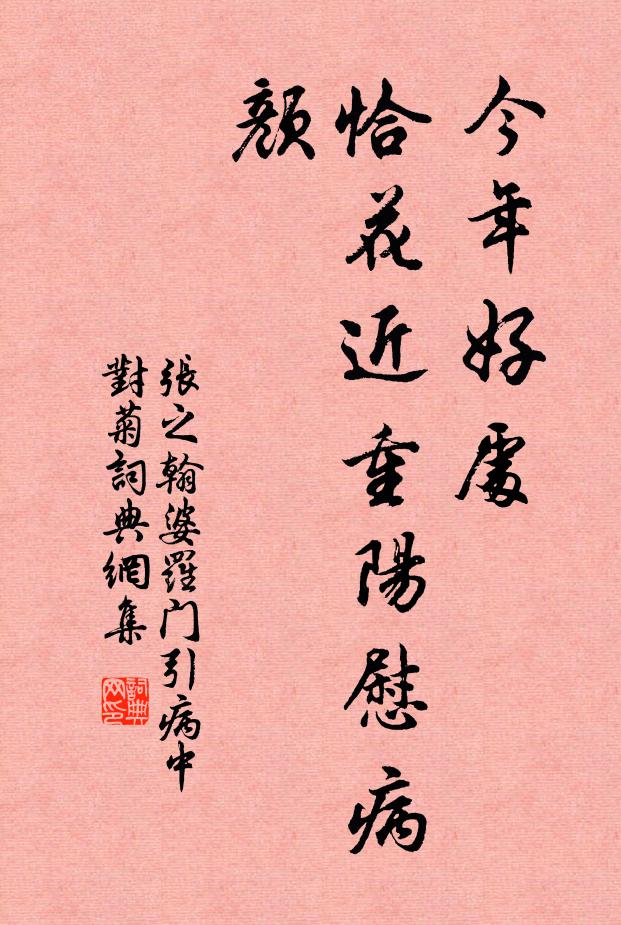 今年好處
恰花近重陽慰病
顏
張之翰婆羅门引病中
對菊詞典網集
詞典
网印